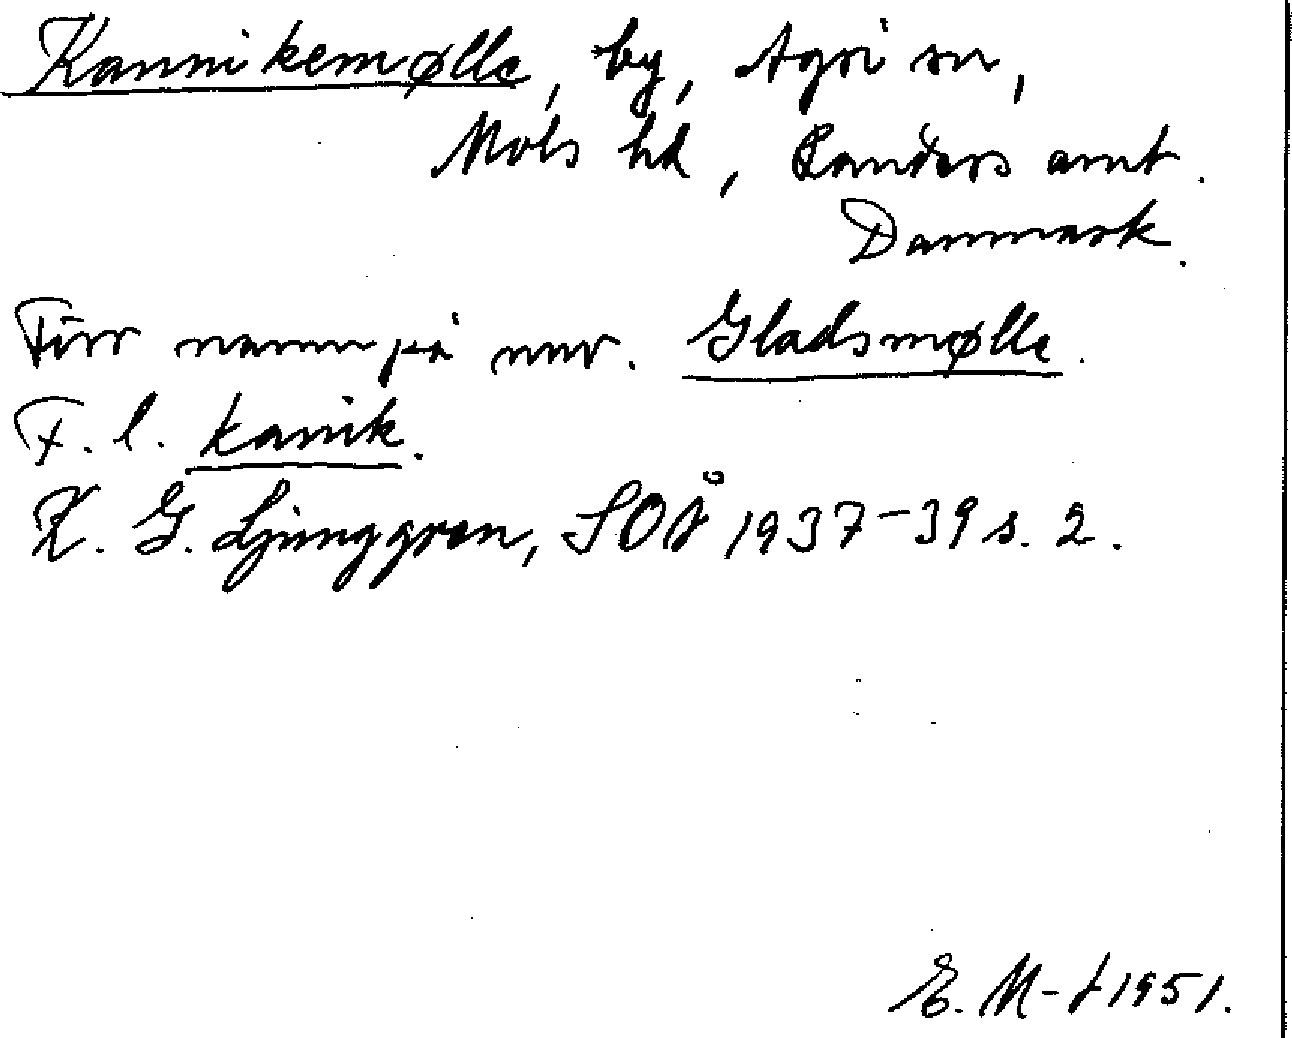 Kannikemølle, by, Agri sn,
Mols hd, Randers amt.
Danmark.
Förr namn på nuv. Gladsmølle.
F. l. kanik.
K. G. Ljunggren, SOÅ 1937-39 s. 2.
E. M-t 1951.